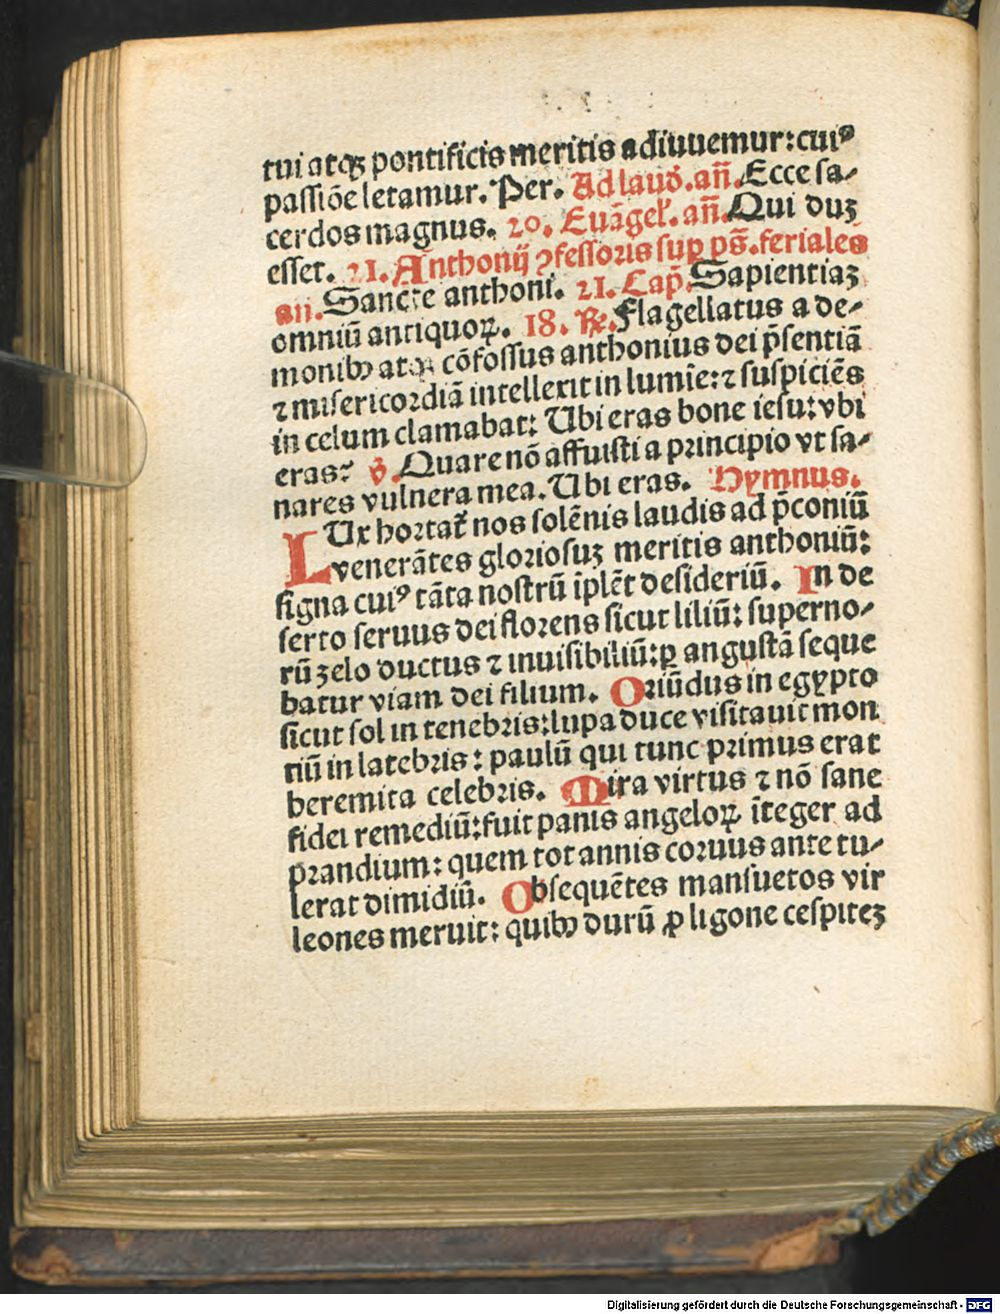 tui atqꝫ pontificis meritis adiuuemur: cuiꝰ
passiõe letamur. Per. Ad laud̾. añ. Ecce sa⸗
cerdos magnus. 20. Euãgel̾. añ. Qui duꝫ
esset. 21. Anthonij ꝯfessoris sup ps̃. feriales
añ. Sancte anthoni. 21. Cap̃. Sapientiaꝫ
omniũ antiquoꝝ. 18. ℟. Flagellatus a de⸗
monibꝰ atqꝫ cõfossus anthonius dei p̃sentiã
⁊ misericordiã intellexit in lumĩe: ⁊ suspiciẽs
in celum clamabat: Ubi eras bone iesu: vbi
eras? ℣. Quare nõ affuisti a principio vt sa⸗
nares vulnera mea. Ubi eras. Hymnus.
LUx hortat᷑ nos solẽnis laudis ad p̃coniũ
venerãtes gloriosuꝫ meritis anthoniũ:
signa cuiꝰ tãta nostrũ iplẽt desideriũ. In de
serto seruus dei florens sicut liliũ: superno⸗
rũ zelo ductus ⁊ inuisibiliũ: ꝑ angustã seque
batur viam dei filium. Oriũdus in egypto
sicut sol in tenebris: lupa duce visitauit mon
tiũ in latebris: paulũ qui tunc primus erat
heremita celebris. Mira virtus ⁊ nõ sane
fidei remediũ: fuit panis angeloꝝ ĩteger ad
prandium: quem tot annis coruus ante tu⸗
lerat dimidiũ. Obsequẽtes mansuetos vir
leones meruit: quibꝰ durũ ꝓ ligone cespiteꝫ
Digitalisierung gefördert durch die Deutsche Forschungsgemeinschaft - DFG